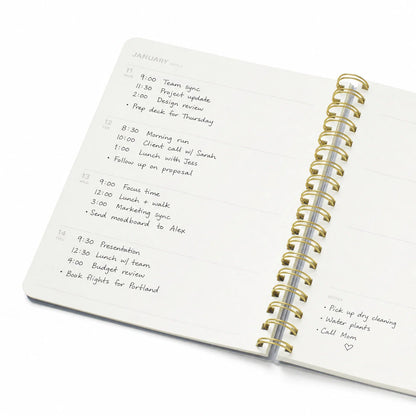 JANUARY
11
9:00 Team sync
11:30 Project update
2:00 Design review
• Prep deck for Thursday
12
8:30 Morning run
10:00 Client call w/ Sarah
1:00 Lunch with Jess
• Follow up on proposal
13
9:00 Focus time
12:00 Lunch + walk
3:00 Marketing sync
• Send moodboard to Alex
14
9:30 Presentation
12:30 Lunch w/ team
4:00 Budget review
• Book flights for Portland
NOTES
• Pick up dry cleaning
• Water plants
• Call Mom